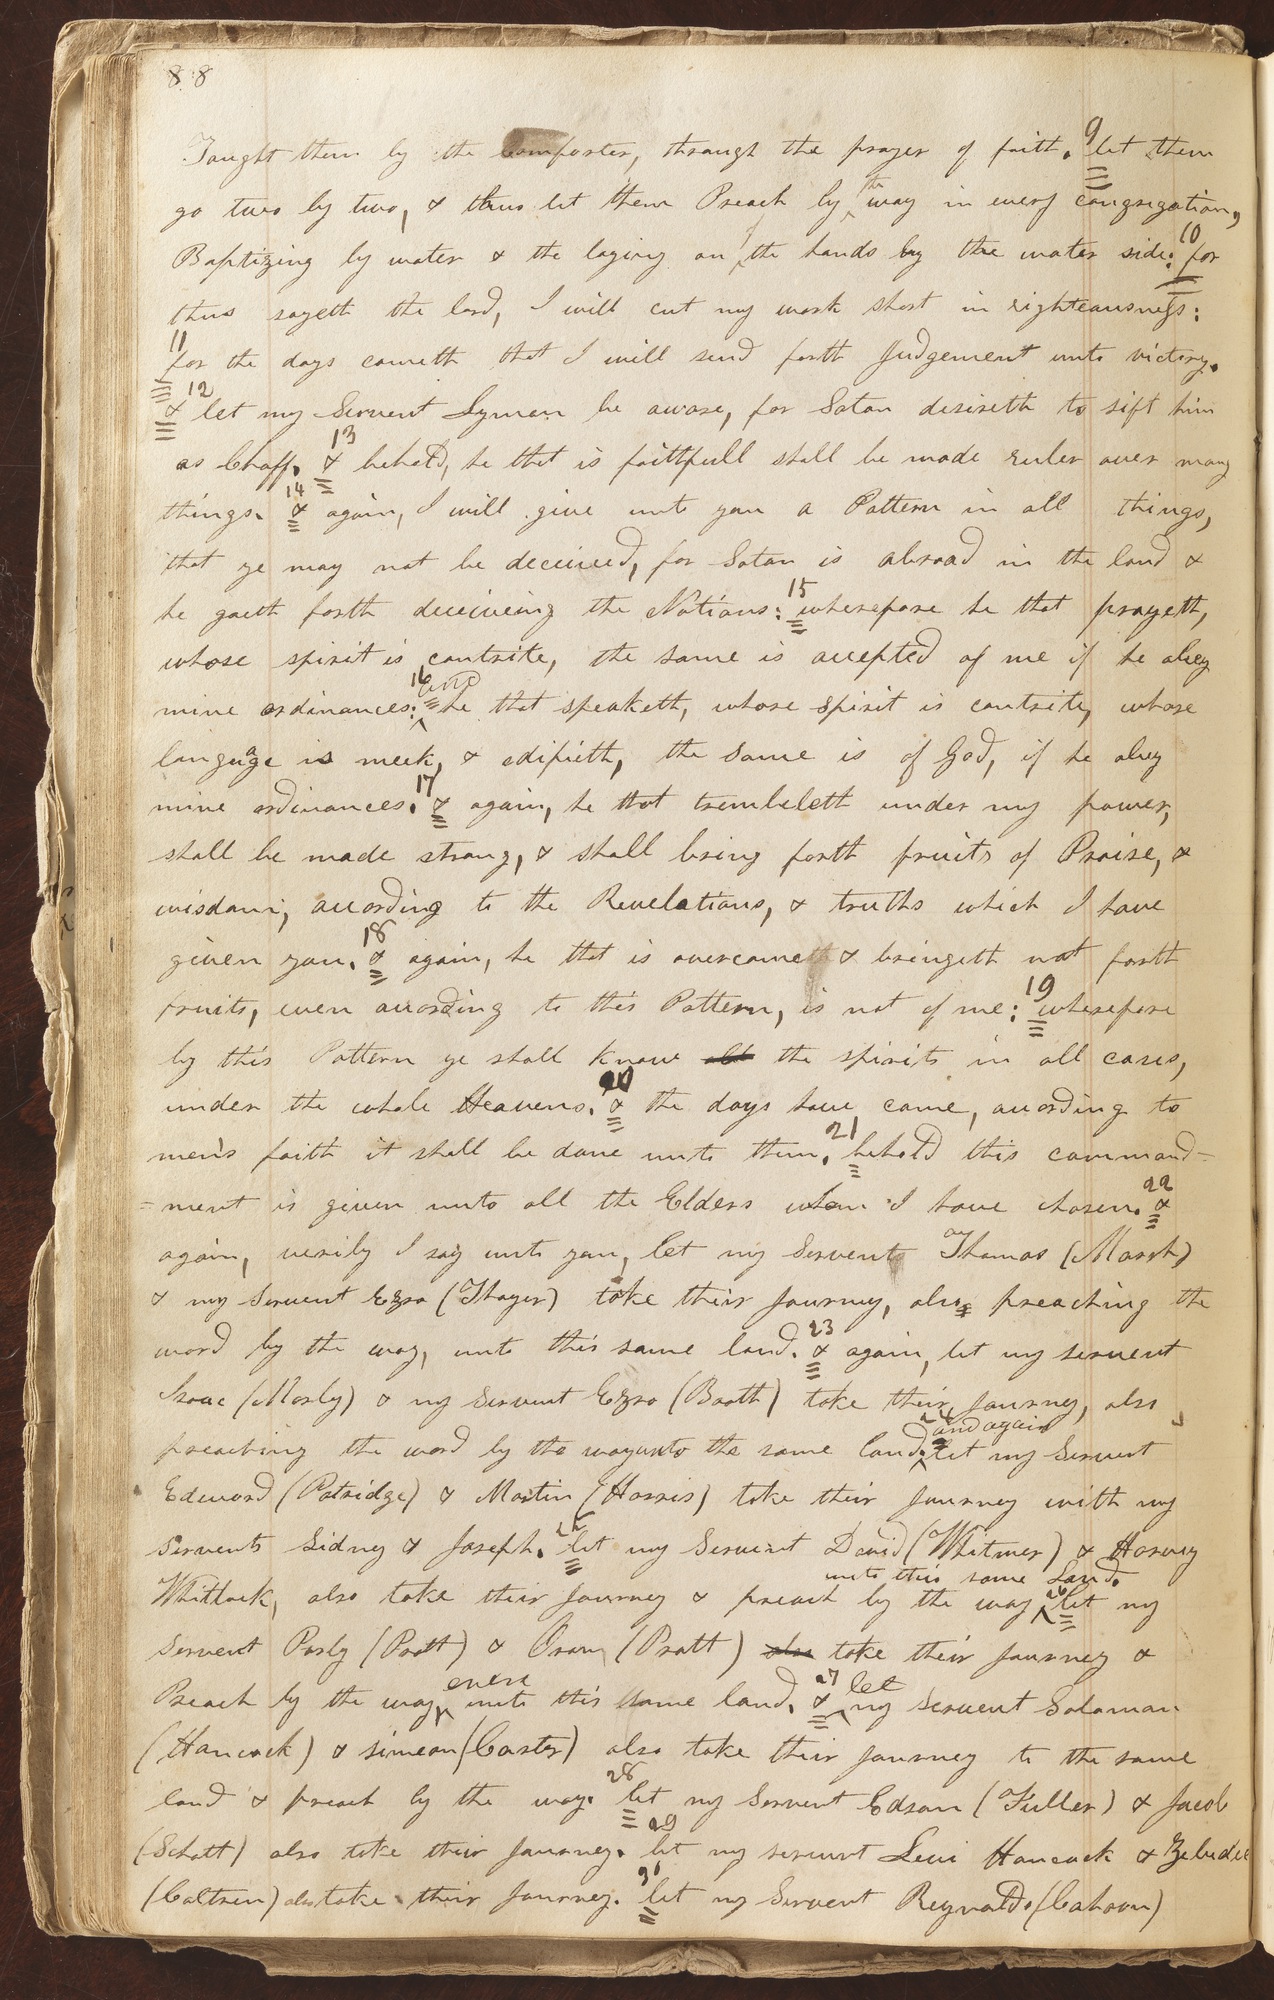 88
Taught them by the Comforter, through the prayer of faith. 9 let them
go two by two, & thus let them Preach by the way in every congregation,
Baptizing by water & the laying on the hands by the water side: 10 for
thus sayeth the lord, I will cut my work short in righteousness:
11 for the days cometh that I will send forth Judgement unto victory.
12 & let my Servent Lyman be aware, for Satan desireth to sift him
as Chaff. 13 & behold, he that is faithfull shall be made ruler over many
things. 14 & again, I will give unto you a Pattern in all things,
that ye may not be deceived, for Satan is abroad in the land &
he goeth forth deceiveing the Nations: 15 wherefore he that prayeth,
whose spirit is contrite, the same is accepted of me if he obey
mine ordinances: 16 and he that speaketh, whose spirit is contrite, whose
language is meek, & edifieth, the same is of God, if he obey
mine ordinances. 17 & again, he that trembeleth under my power,
shall be made strong, & shall bring forth fruits of Praise, &
wisdom, according to the Revelations, & truths which I have
given you. 18 & again, he that is overcometh & bringeth not forth
fruits, even according to this Pattern, is not of me: 19 wherefore
by this Pattern ye shall know all the spirits in all cases,
under the whole Heavens. 20 & the days have come, according to
men's faith it shall be done unto them. 21 behold this command-
=ment is given unto all the Elders whom I have chosen. 22 &
again, verily I say unto you, let my Servent Thomas (Marsh)
& my Servent Ezra (Thayer) take their Journey, also preaching the
word by the way, unto this same land. 23 & again, let my servent
Isaac (Morly) & my Servent Ezra (Booth) take their Journey, also
preaching the word by the way unto the same land. 24 and again let my Servent
Edward (Patridge) & Martin (Harris) take their Journey with my
Servents Sidney & Joseph. 25 let my Servent David (Whitmer) & Harvey
Whitlock, also take their Journey & preach by the way unto this same Land. 26 let my
Servent Parly (Pratt) & Orson (Pratt) also take their Journey &
Preach by the way, even unto this same land. 27 & let my servent Solomon
(Hancock) & simeon (Carter) also take their Journey to the same
land & preach by the way. 28 let my Servent Edson (Fuller) & Jacob
(Schott) also take their Journey. 29 let my servent Levi Hancock & Zebedee
(Coltrin) also take their Journey. let my Servent Reynolds (Cahoon)